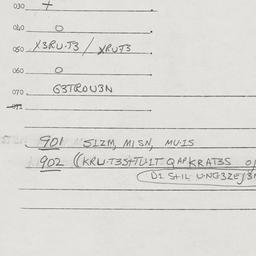 030 +
040 O
050 X3RU-T3 / XRUT3
060 O
070 G3TROU3N
901 S1ZM, M1SN, MU-1S
902 ((KRU-T3S+TU1T QAPKRAT3S
D1 S+1L U-NG3ZEJ3